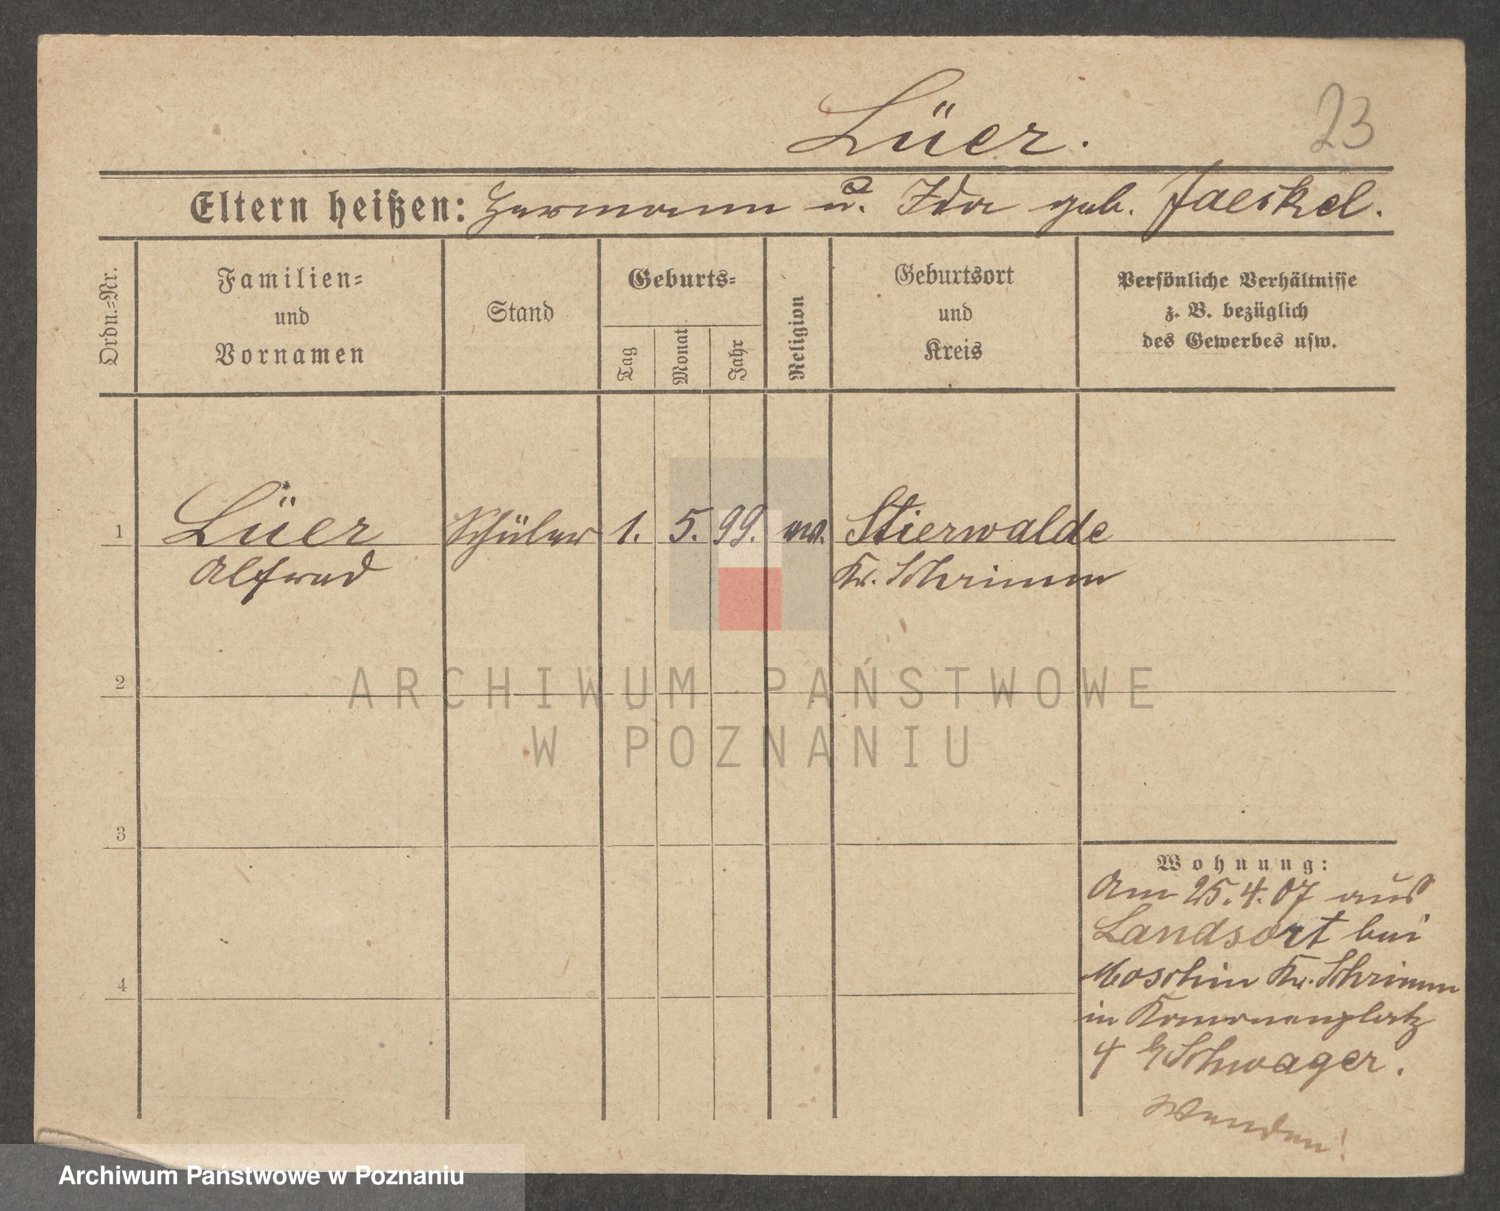 Lüer.
23
Eltern heißen: Hermann u. Ida geb. Jaeskel.
Ordn.-Nr.
Familien-
und
Vornamen
Stand
Geburts-
Tag
Monat
Jahr
Religion
Geburtsort
und
Kreis
Persönliche Verhältnisse
z. B. bezüglich
des Gewerbes usw.
1 Lüer Schüler 1. 5. 99. ev. Stierwalde
Alfred Kr. Schrimm
2
ARCHIWUM PAŃSTWOWE
W POZNANIU
3
4
Wohnung:
Am 25.4.07 aus
Landsort bei
Moschin Kr. Schrimm
in
4 b/ Schwager.
Wenden!
Archiwum Państwowe w Poznaniu